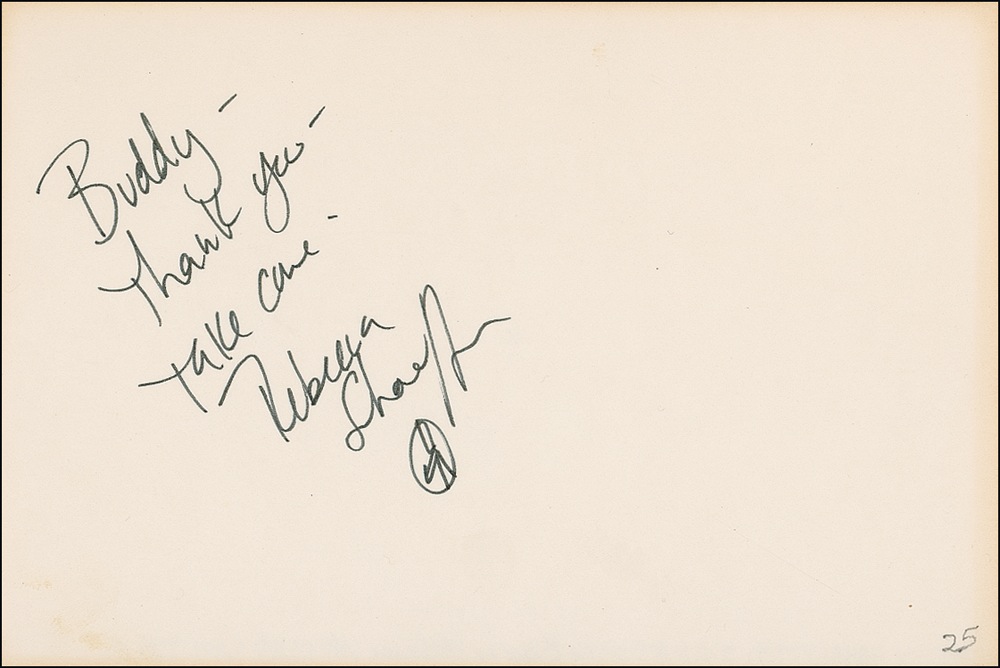 Buddy -
Thank you -
Take care -
Rebecca
Schaeffer
25